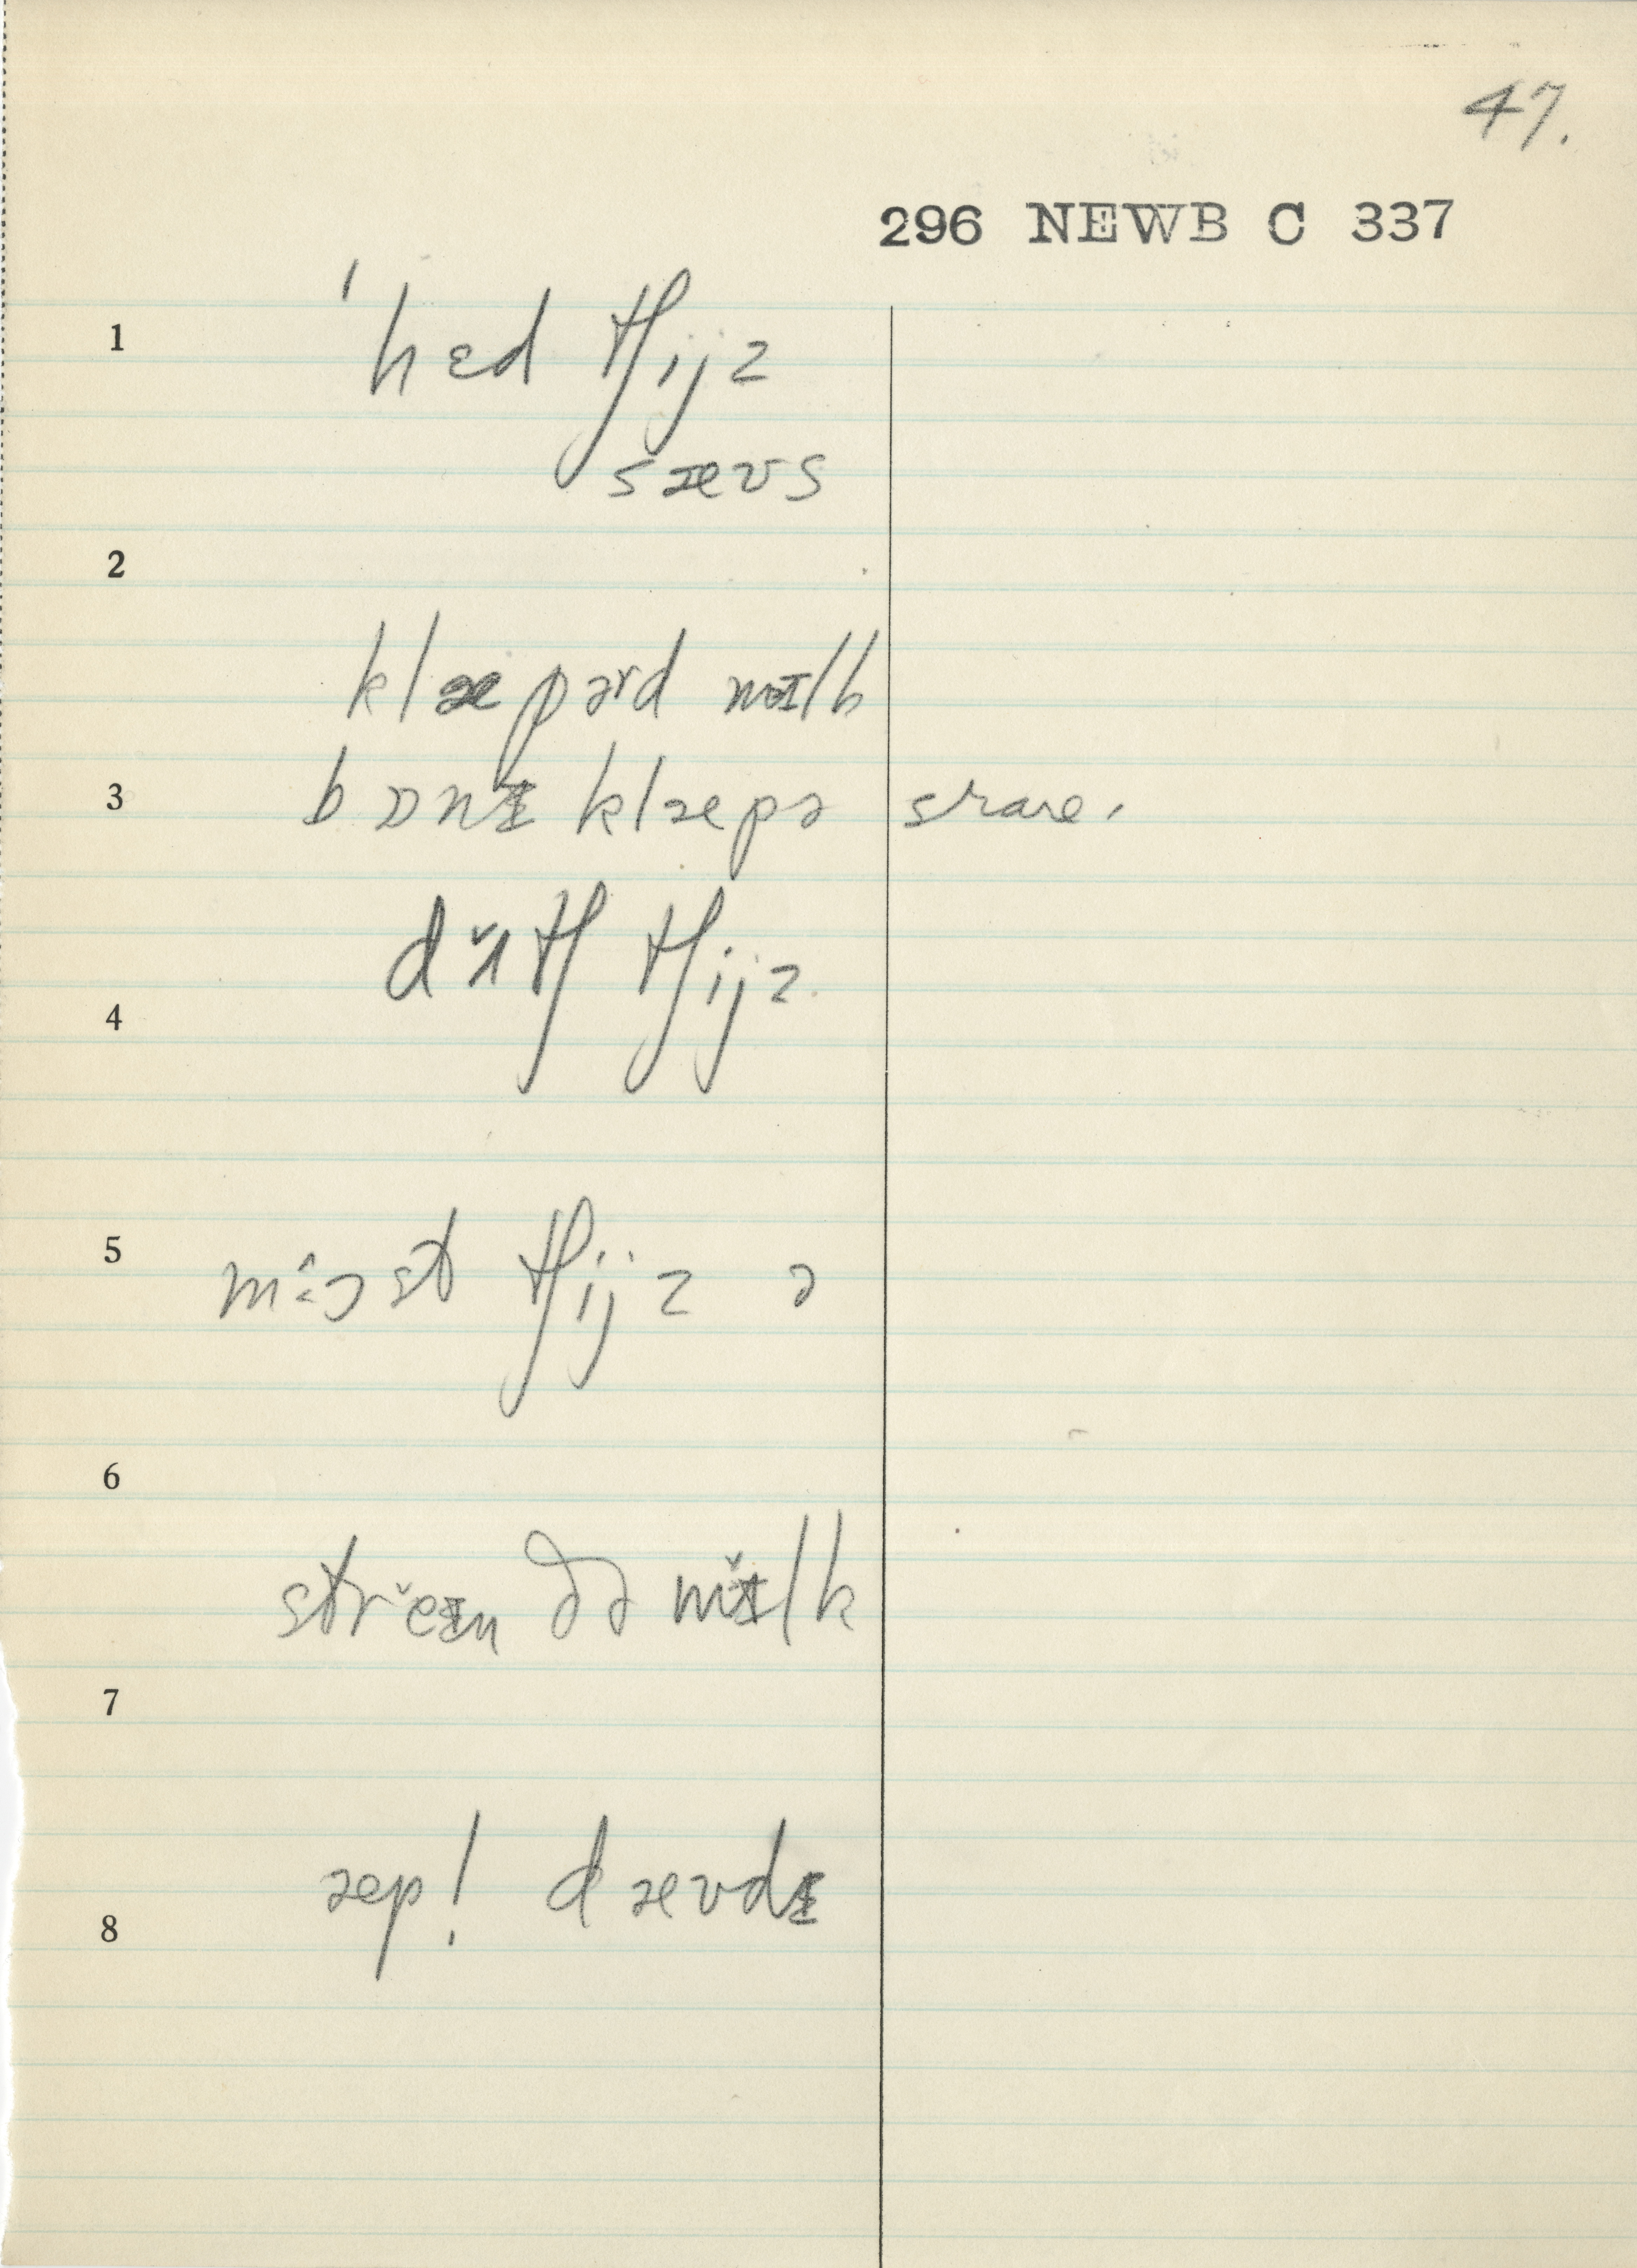 47.
296 NEWB C 337
1 ˈhɛd tʃijz
sæʊs
2
klæpərd mɪlk
3 bɒnɪ klæpə rare.
dʌ̌tʃ tʃijz.
4
5 mɔ̂ist tʃijz ə
6
strěɪn ðə mɪ̌lk
7
æp! dæʊdɪ
8